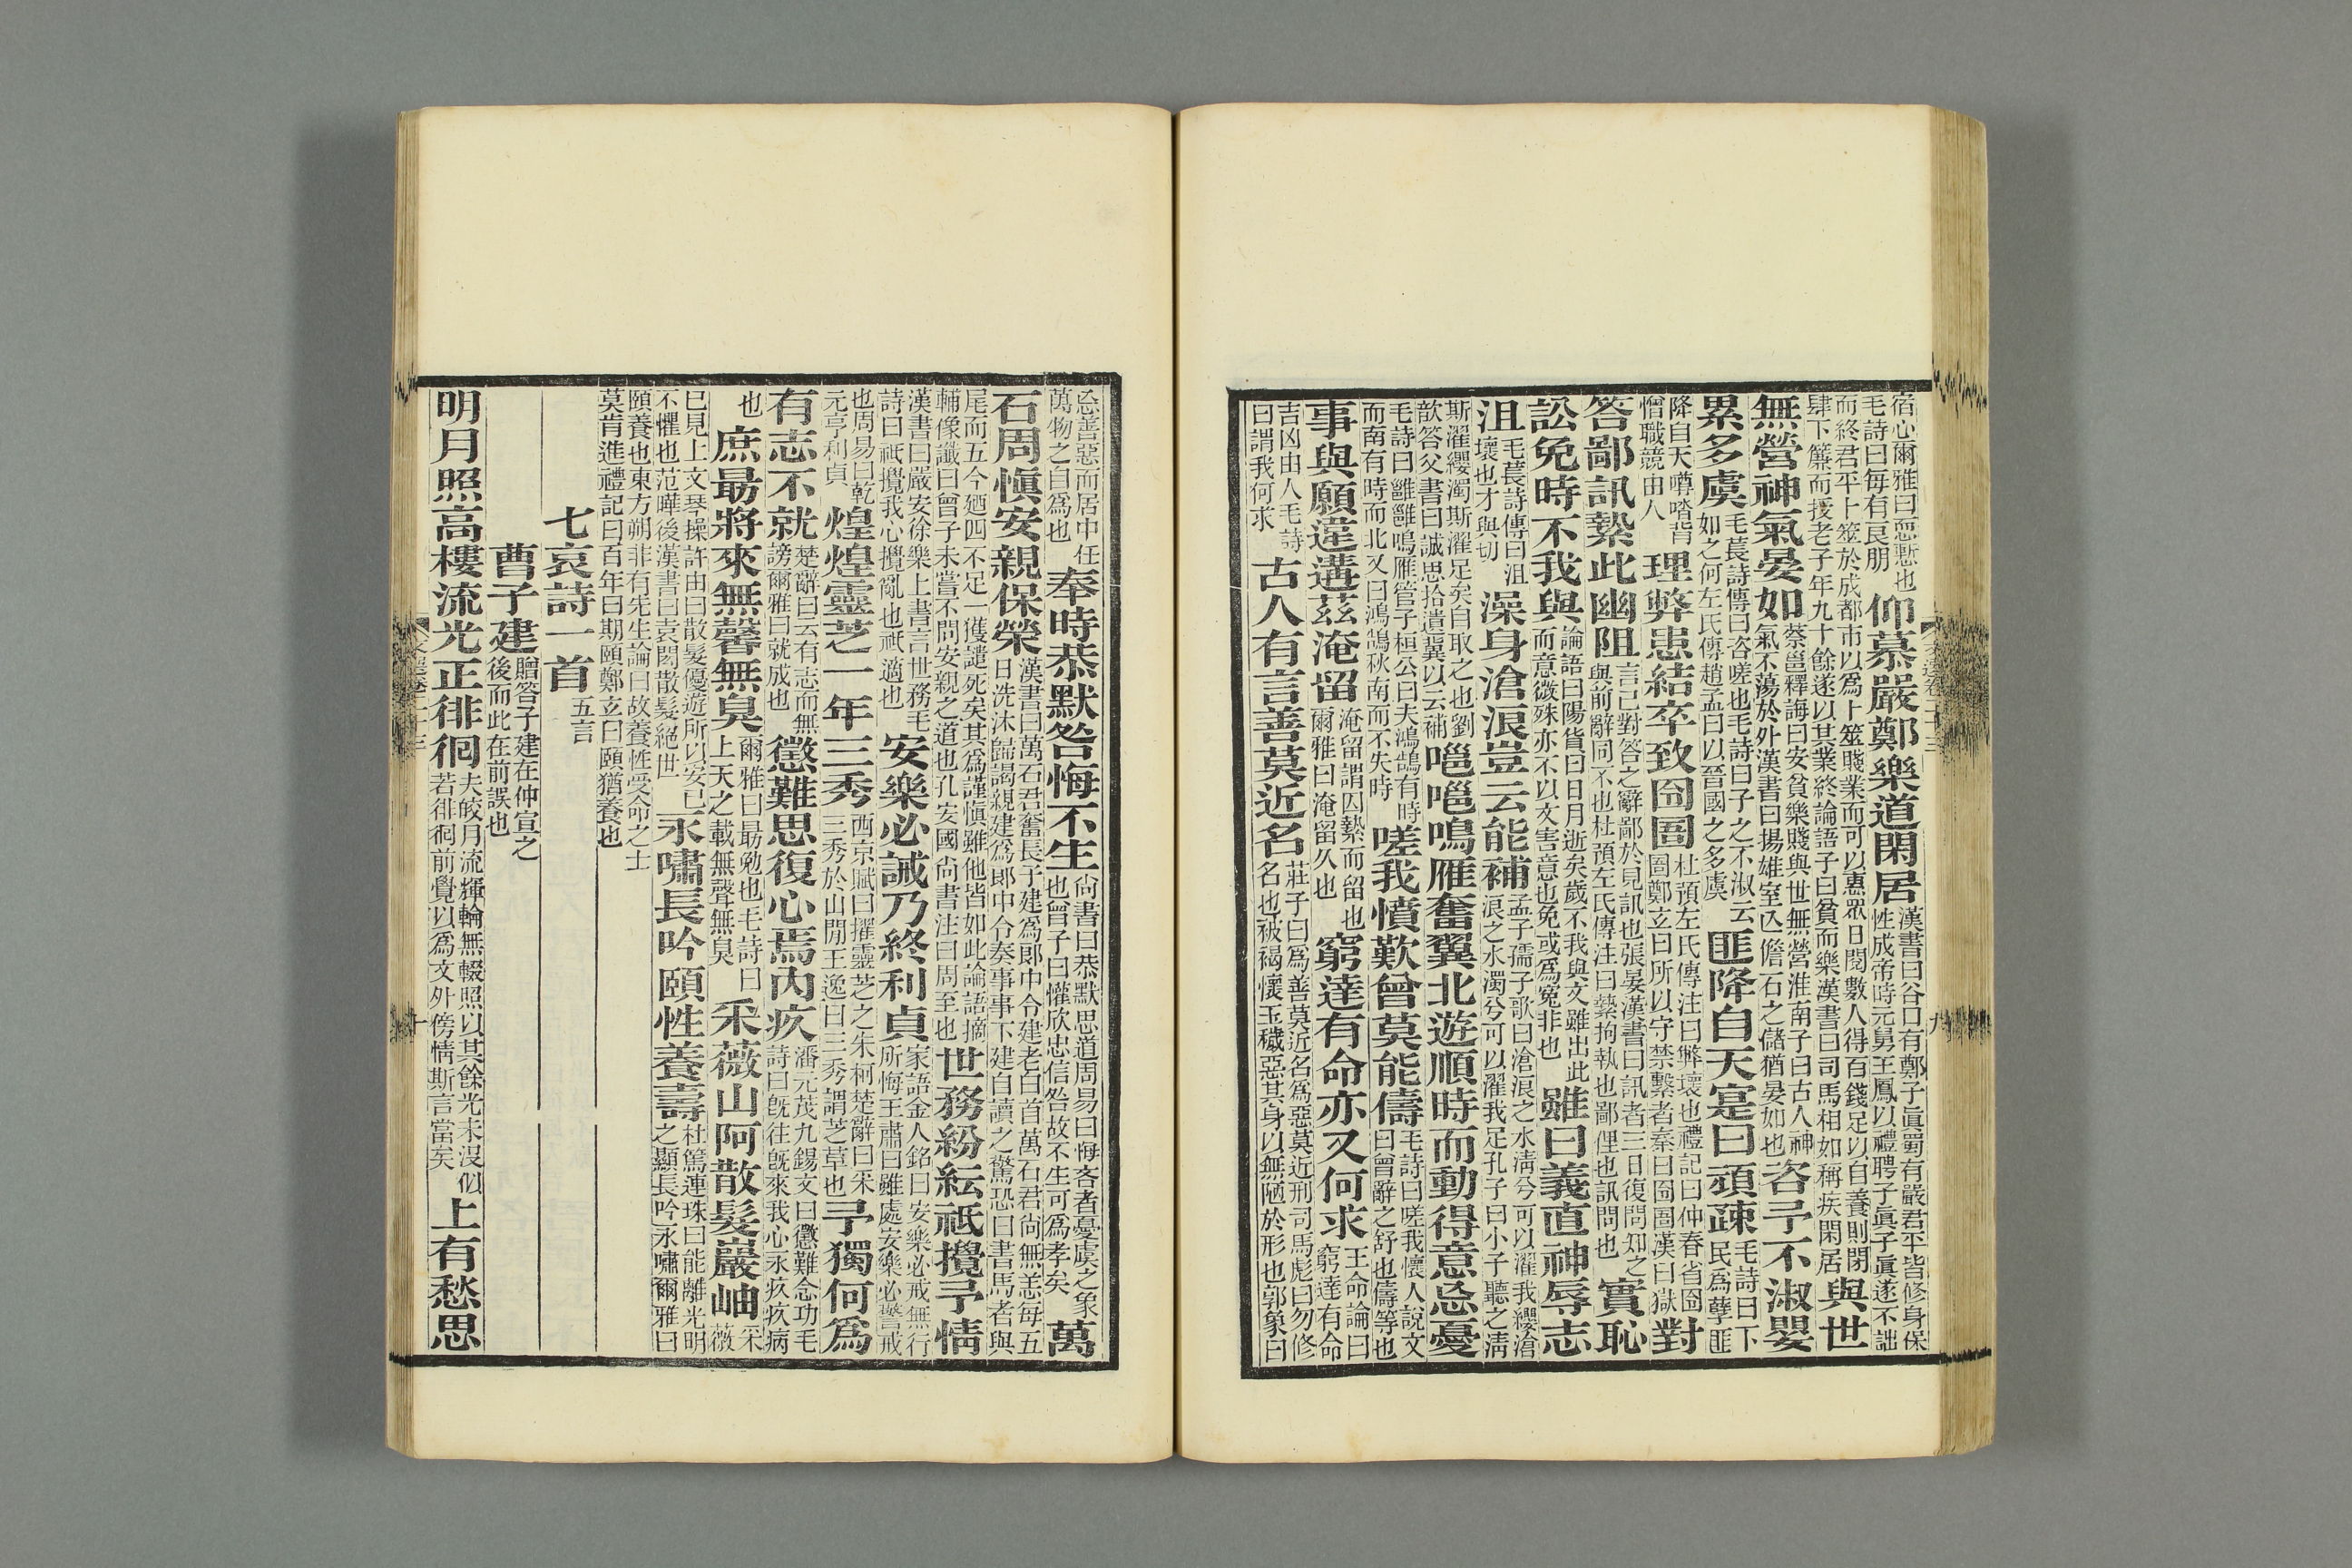 宿心爾雅曰恧慙也
毛詩曰每有良朋
仰慕嚴鄭樂道閑居
漢書曰谷口有鄭子眞蜀有嚴君平皆修身保
性成帝時元舅王鳳以禮聘子眞子眞遂不詘
而終君平卜筮於成都市以爲卜筮賤業而可以惠眾日閱數人得百錢足以自養則閉
肆下簾而授老子年九十餘遂以其業終論語子曰貧而樂漢書曰司馬相如稱疾閑居
與世
無營神氣晏如
蔡邕釋誨曰安貧樂賤與世無營淮南子曰古人神
氣不蕩於外漢書曰揚雄室亾儋石之儲猶晏如也
咨予不淑嬰
累多虞
毛萇詩傳曰咨嗟也毛詩曰子之不淑云
如之何左氏傳趙孟曰以晉國之多虞
匪降自天寔曰頑疎
毛詩曰下
民爲孽匪
降自天噂㗳背
憎職競由人
理弊患結卒致囹圄
杜預左氏傳注曰弊壞也禮記曰仲春省囹
圄鄭玄曰所以守禁繫者秦曰囹圄漢曰獄
對
答鄙訊縶此幽阻
言己對答之辭鄙於見訊也張晏漢書曰訊者三日復問知之
與前辭同不也杜預左氏傳注曰縶拘執也鄙俚也訊問也
實恥
訟免時不我與
論語曰陽貨曰日月逝矣歲不我與文雖出此
而意微殊亦不以文害意也免或爲冤非也
雖曰義直神辱志
沮
毛萇詩傳曰沮
壞也才與切
澡身滄浪豈云能補
孟子孺子歌曰滄浪之水清兮可以濯我纓滄
浪之水濁兮可以濯我足孔子曰小子聽之清
斯濯纓濁斯濯足矣自取之也劉
歆答父書曰誠思拾遺冀以云補
嗈嗈鳴雁奮翼北遊順時而動得意忘憂
毛詩曰雝雝鳴雁管子桓公曰夫鴻鵠有時
而南有時而北又曰鴻鵠秋南而不失時
嗟我憤歎曾莫能儔
毛詩曰嗟我懷人說文
曰曾辭之舒也儔等也
事與願違遘茲淹留
淹留謂囚縶而留也
爾雅曰淹留久也
窮達有命亦又何求
王命論曰
窮達有命
吉凶由人毛詩
曰謂我何求
古人有言善莫近名
莊子曰爲善莫近名爲惡莫近刑司馬彪曰勿修
名也被褐懷玉穢惡其身以無陋於形也郭象曰
忘善惡而居中任
萬物之自爲也
奉時恭默咎悔不生
尙書曰恭默思道周易曰悔吝者憂虞之象
也曾子曰懽欣忠信咎故不生可爲孝矣
萬
石周愼安親保榮
漢書曰萬石君奮長子建爲郞中令建老白首萬石君尙無恙每五
日洗沐歸謁親建爲郞中令奏事事下建自讀之驚恐曰書馬者與
尾而五今廼四不足一獲譴死矣其爲謹愼雖他皆如此論語摘
輔像讖曰曾子未嘗不問安親之道也孔安國尙書注曰周至也
世務紛紜祗攪予情
漢書曰嚴安徐樂上書言世務毛
詩曰祗攪我心攪亂也祗適也
安樂必誡乃終利貞
家語金人銘曰安樂必戒無行
所悔王肅曰雖處安樂必警戒
也周易曰乾
元亨利貞
煌煌靈芝一年三秀
西京賦曰擢靈芝之朱柯楚辭曰采
三秀於山閒王逸曰三秀謂芝草也
予獨何爲
有志不就
楚辭曰云有志而無
謗爾雅曰就成也
懲難思復心焉內疚
潘元茂九錫文曰懲難念功毛
詩曰旣往旣來我心永疚疚病
也
庶勗將來無馨無臭
爾雅曰勗勉也毛詩曰
上天之載無聲無臭
采薇山阿散髮巖岫
采
薇
已見上文琴操許由曰散髮優遊所以安已
不懼也范曄後漢書曰袁閎散髮絕世
永嘯長吟頤性養壽
杜篤連珠曰能離光明
之顯長吟永嘯爾雅曰
頤養也東方朔非有先生論曰故養性受命之士
莫肯進禮記曰百年曰期頤鄭玄曰頤猶養也
七哀詩一首
五言
曹子建
贈答子建在仲宣之
後而此在前誤也
明月照高樓流光正徘徊
夫皎月流輝輪無輟照以其餘光未沒似
若徘徊前覺以爲文外傍情斯言當矣
上有愁思